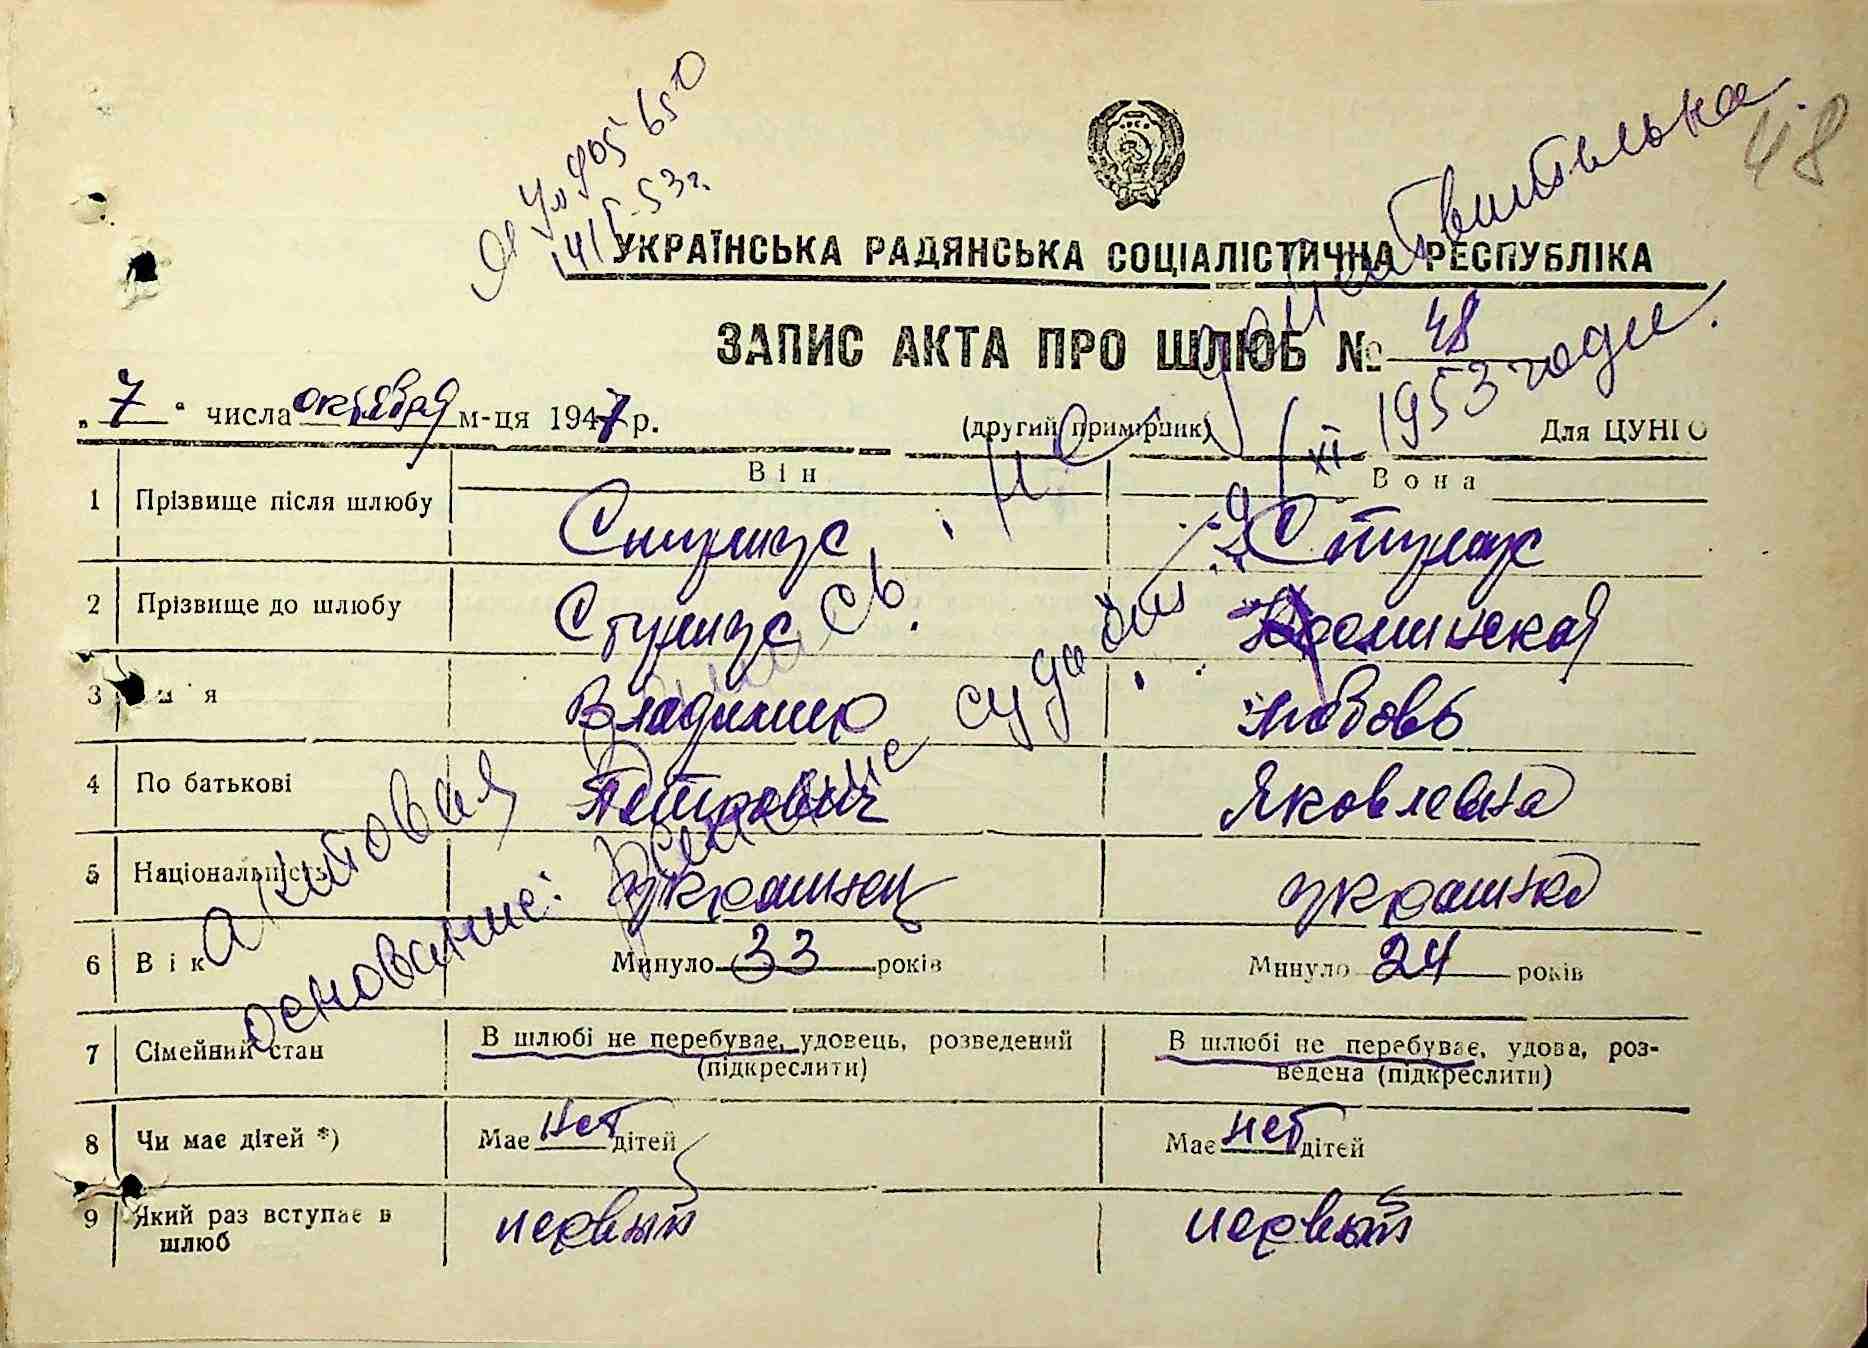 48
УКРАЇНСЬКА РАДЯНСЬКА СОЦІАЛІСТИЧНА РЕСПУБЛІКА
ЗАПИС АКТА ПРО ШЛЮБ № 48
„7“ числа октября м-ця 1947 р. (другий примірник) Для ЦУНГО
Він Вона
1 Прізвище після шлюбу
2 Прізвище до шлюбу
3 Ім'я Владимир Любовь
4 По батькові Петрович Яковлевна
5 Національність украинец украинка
6 Вік Минуло 33 років Минуло 24 років
7 Сімейний стан В шлюбі не перебуває, удовець, розведений В шлюбі не перебуває, удова, роз-
(підкреслити) ведена (підкреслити)
8 Чи має дітей *) Має нет дітей Має нет дітей
9 Який раз вступає в первый первый
шлюб
актовая недействительна
основание: суда от
XII 1953 года.